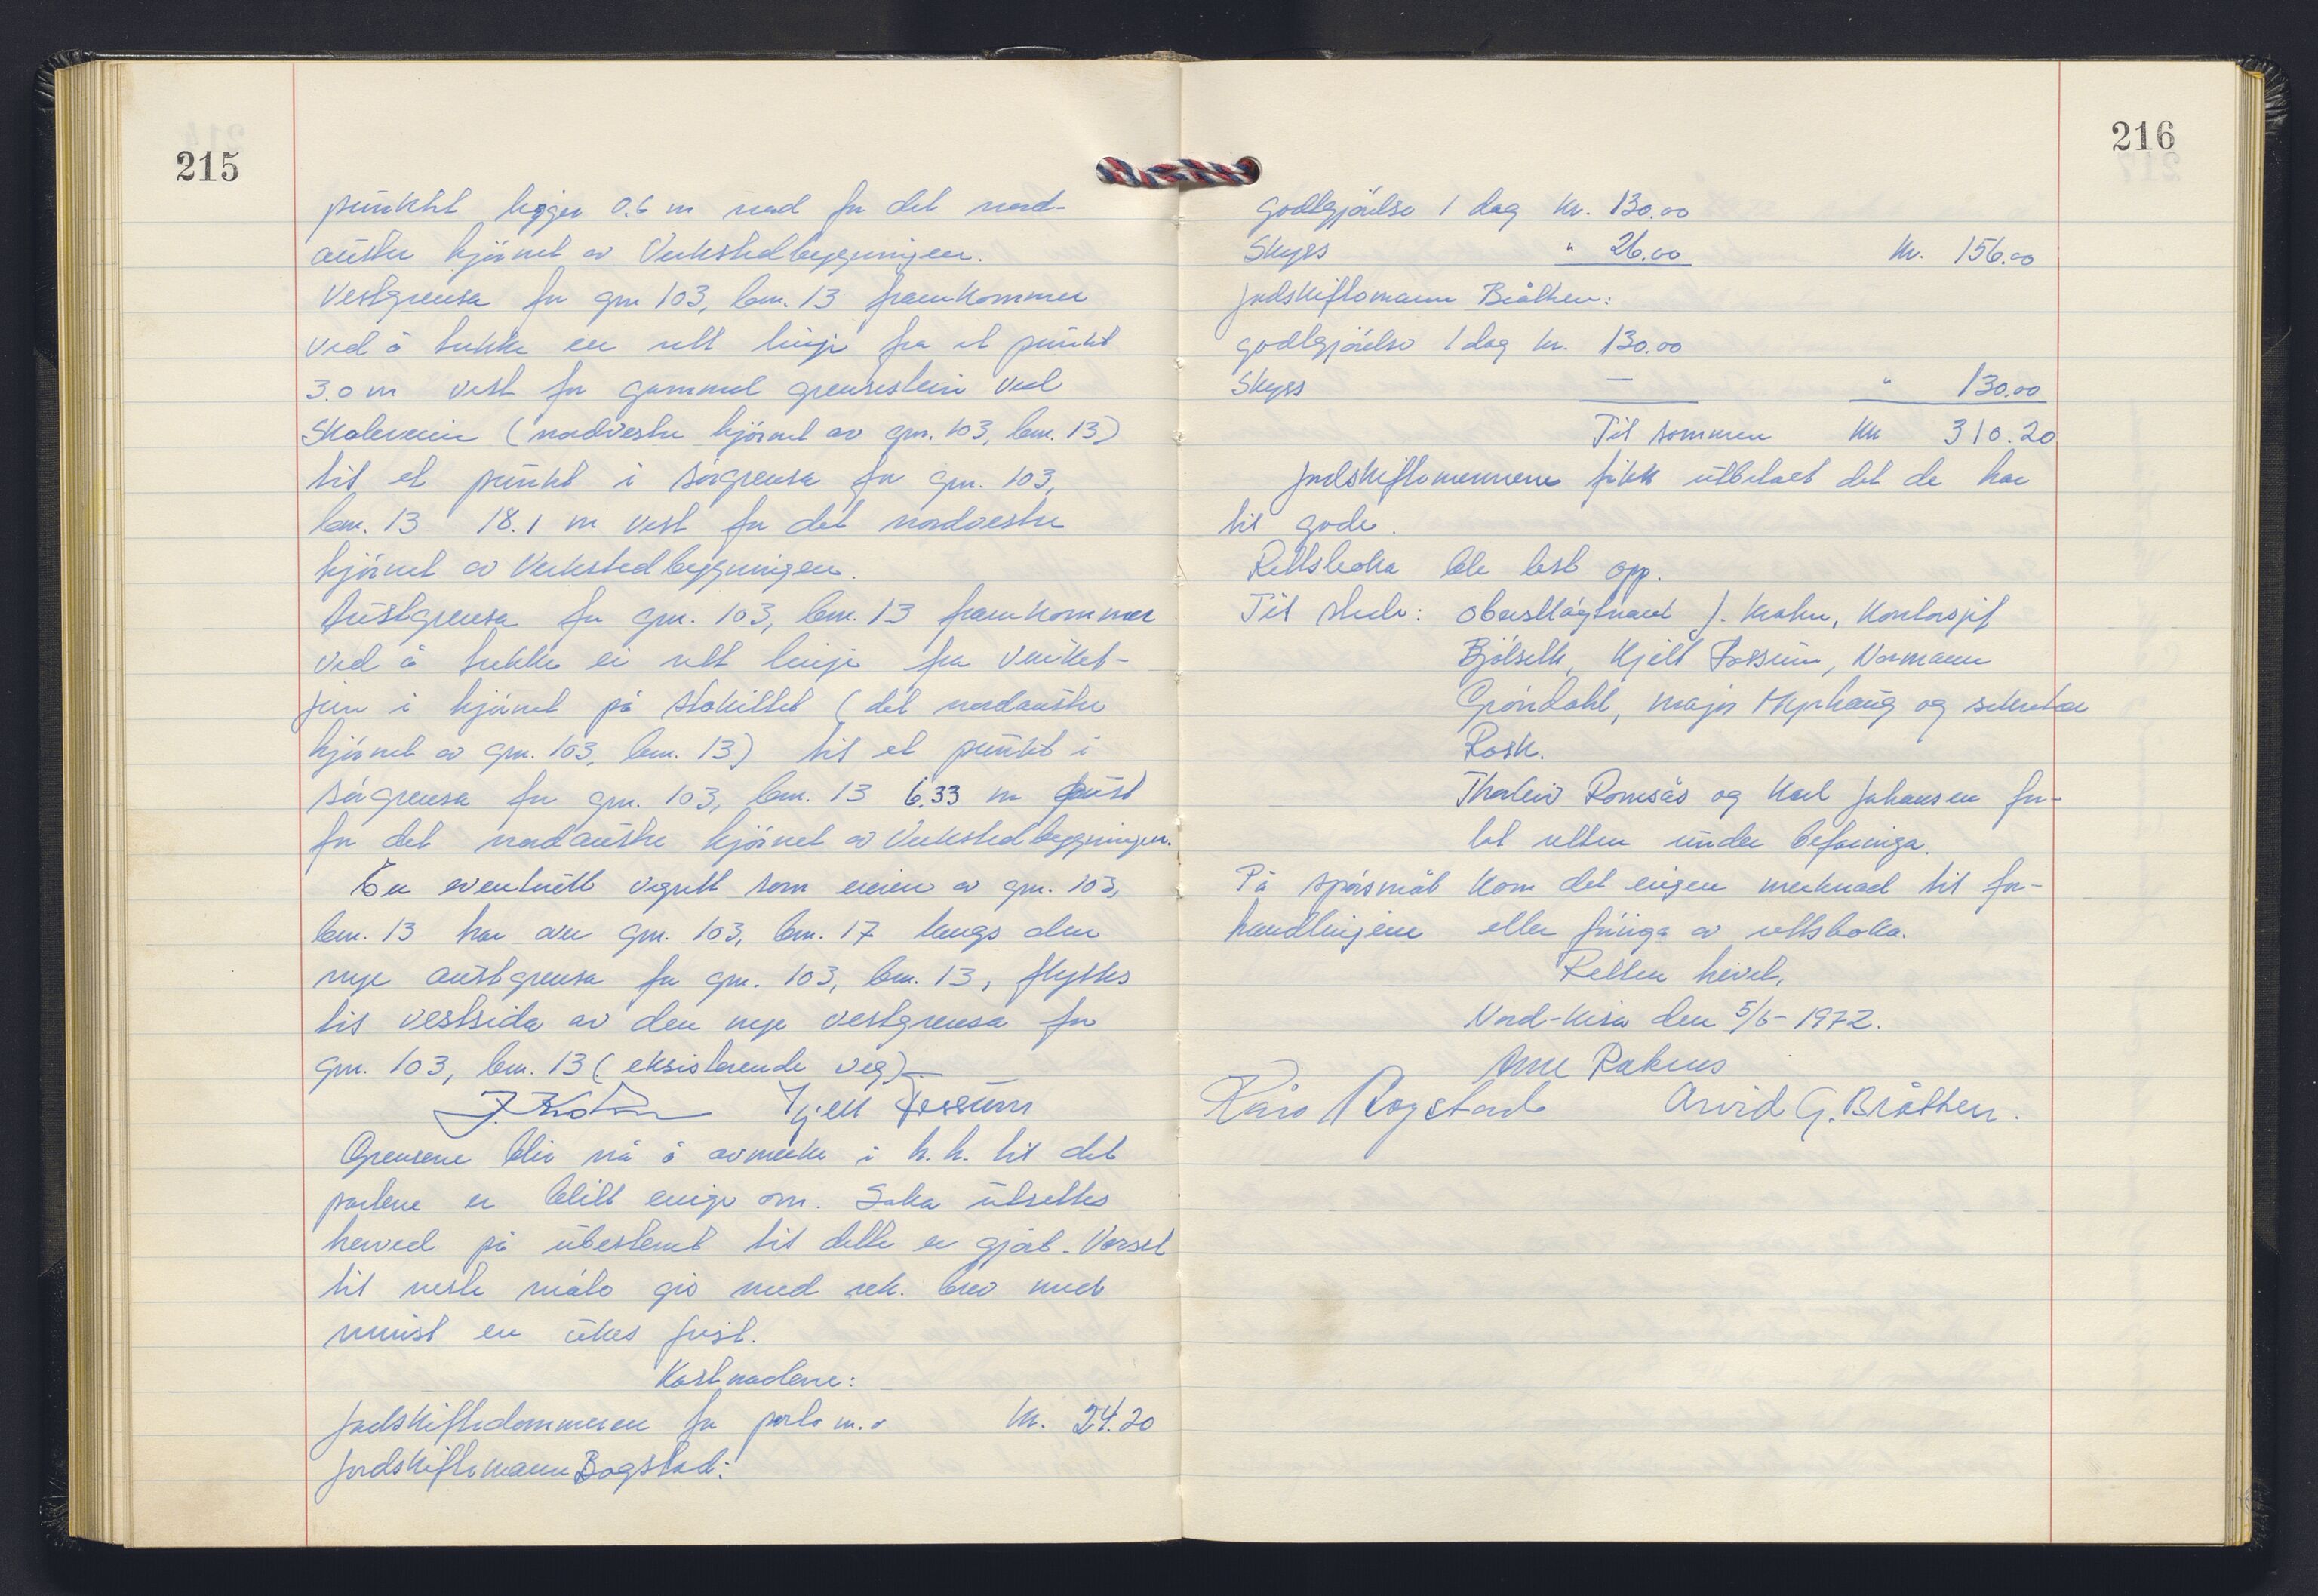 215
punktet ligger 0.6 m nord for det nord-
austre hjörnet av Verkstedbygningen.
Vestgrensa for gnr 103, bnr. 13 framkommer
ved å trekke en rett linje fra et punkt
3.0 m vest for gammel grensestein ved
Skoleveien (nordvestre hjörnet av gnr. 103, bnr. 13)
til et punkt i sörgrensa for gnr. 103,
bnr. 13 18.1 m vest for det nordvestre
hjörnet av Verkstedbygningen.
Austgrensa for gnr. 103, bnr. 13 framkommer
ved å trekke ei rett linje fra vinkel-
jern i hjörnet på stakittet (det nordaustre
hjörnet av gnr. 103, bnr. 13) til et punkt i
sörgrensa for gnr. 103, bnr. 13 6.33 m aust
for det nordaustre hjörnet av Verkstedbygningen.
En eventuell vegrett som eieren av gnr. 103,
bnr. 13 har over gnr. 103, bnr. 17 langs den
nye austgrensa for gnr. 103, bnr. 13, flyttes
til vestsida av den nye vestgrensa for
gnr. 103, bnr. 13 (eksisterende veg).-
J. Krohn Kjell Fossum
Grensene blir nå å avmerke i h.h. til det
partene er blitt enige om. Saka utsettes
herved på ubestemt til dette er gjort. Varsel
til neste möte gis med rek. brev med
minst en ukes frist.
Kostnadene:
Jordskiftedommeren for porto m.v kr. 24.20
Jordskiftemann Bogstad:
216
godtgjörelse 1 dag kr. 130.00
Skyss " 26.00 kr. 156.00
Jordskiftemann Bråthen:
godtgjörelse 1 dag kr. 130.00
Skyss — " 130.00
Til sammen kr 310.20
Jordskiftemennene fikk utbetalt det de har
til gode.
Rettsboka ble lest opp.
Til stede: oberstlöytnant J. Krohn, Kontorsjef
Bjölseth, Kjell Fossum, Normann
Gröndahl, major Myrhaug og sekretær
Rosk.
Thorleiv Romsås og Karl Johansen for-
lot retten under befaringa.
På spörsmål kom det ingen merknad til for-
handlingene eller föringa av rettsboka.
Retten hevet.
Nord-Kisa den 5/5- 1972.
Arne Raknes
Kåre Bogstad Arvid G. Bråthen.